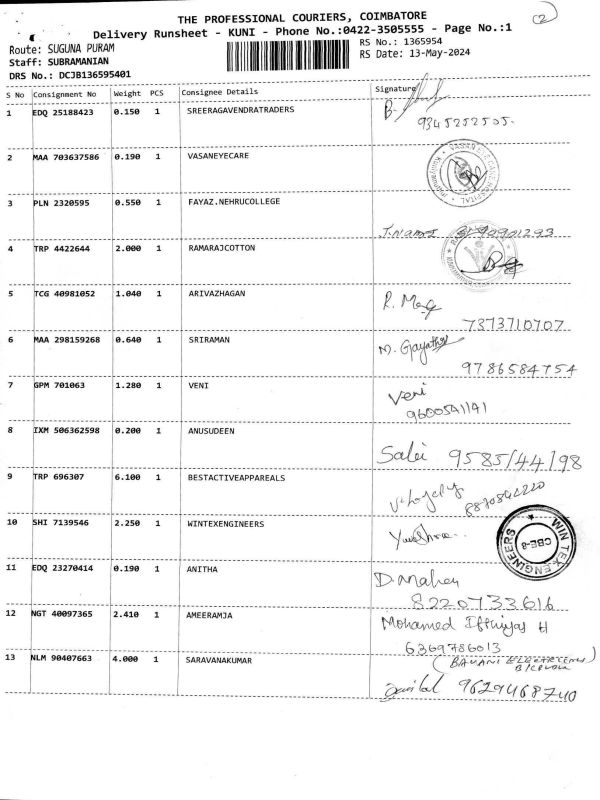 2
THE PROFESSIONAL COURIERS, COIMBATORE
Delivery Runsheet - KUNI - Phone No.:0422-3505555 - Page No.:1
Route: SUGUNA PURAM
RS No.: 1365954
Staff: SUBRAMANIAN
RS Date: 13-May-2024
DRS No.: DCJB136595401
S No Consignment No Weight PCS Consignee Details Signature
1 EDQ 25188423 0.150 1 SREERAGAVENDRATRADERS
9345252505.
2 MAA 703637586 0.190 1 VASANEYECARE
VASAN EYE CARE HOSPITAL
3 PLN 2320595 0.550 1 FAYAZ.NEHRUCOLLEGE
4 TRP 4422644 2.000 1 RAMARAJCOTTON
5 TCG 40981052 1.040 1 ARIVAZHAGAN
7373710707
6 MAA 298159268 0.640 1 SRIRAMAN
M. Gayathri
9786584754
7 GPM 701063 1.280 1 VENI
Veni
9600541191
8 IXM 506362598 0.200 1 ANUSUDEEN
9585144198
9 TRP 696307 6.100 1 BESTACTIVEAPPAREALS
8870842220
10 SHI 7139546 2.250 1 WINTEXENGINEERS
WIN TEX ENGINEERS
CBE-8
11 EDQ 23270414 0.190 1 ANITHA
D. Mahen
8220733616
12 NGT 40097365 2.410 1 AMEERAMJA
Mohamed Ifthiyas H
6369786013
13 NLM 90407663 4.000 1 SARAVANAKUMAR
9629468740